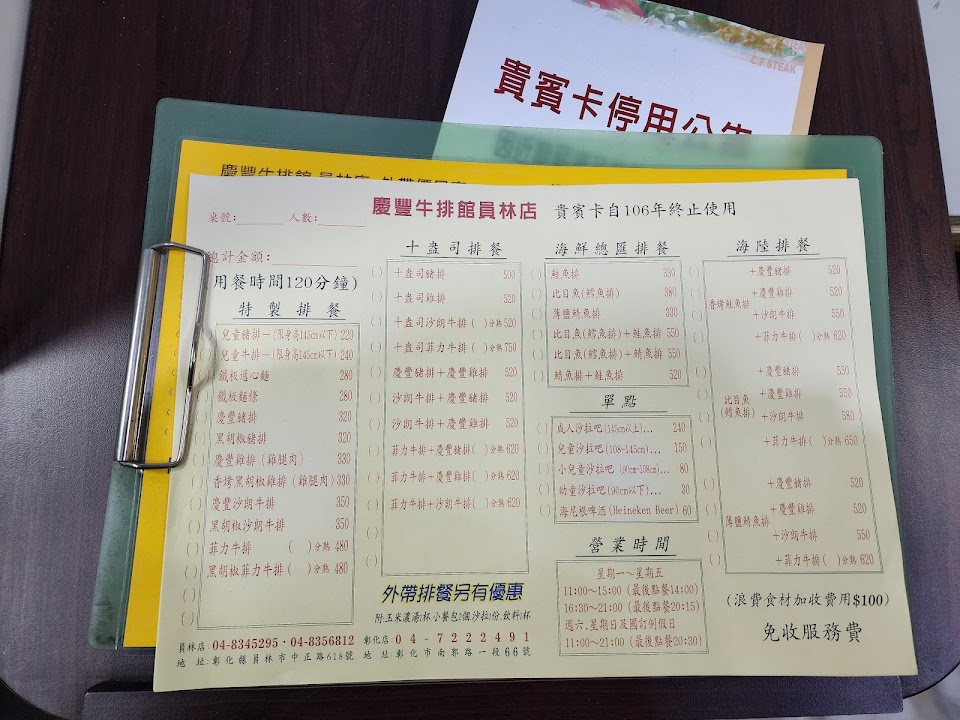 C.F STEAK
貴賓卡停用公告
慶豐牛排館 員林店
慶豐牛排館員林店 貴賓卡自106年終止使用
桌號:______ 人數:______
總計金額:
用餐時間120分鐘)
特製排餐
( ) 兒童豬排－(限身高145cm以下) 220
( ) 兒童牛排－(限身高145cm以下) 240
( ) 鐵板通心麵 280
( ) 鐵板麵條 280
( ) 慶豐豬排 320
( ) 黑胡椒豬排 320
( ) 慶豐雞排 (雞腿肉) 330
( ) 香烤黑胡椒雞排 (雞腿肉) 330
( ) 慶豐沙朗牛排 350
( ) 黑胡椒沙朗牛排 350
( ) 菲力牛排 ( )分熟 480
( ) 黑胡椒菲力牛排 ( )分熟 480
十盎司排餐
( ) 十盎司豬排 500
( ) 十盎司雞排 520
( ) 十盎司沙朗牛排 ( )分熟 520
( ) 十盎司菲力牛排 ( )分熟 750
( ) 慶豐豬排＋慶豐雞排 520
( ) 沙朗牛排＋慶豐豬排 520
( ) 沙朗牛排＋慶豐雞排 520
( ) 菲力牛排＋慶豐豬排 ( )分熟 620
( ) 菲力牛排＋慶豐雞排 ( )分熟 620
( ) 菲力牛排＋沙朗牛排 ( )分熟 620
海鮮總匯排餐
( ) 鮭魚排 330
( ) 比目魚(鱈魚排) 380
( ) 薄鹽鯖魚排 330
( ) 比目魚(鱈魚排)＋鮭魚排 550
( ) 比目魚(鱈魚排)＋鯖魚排 550
( ) 鯖魚排＋鮭魚排 520
單點
( ) 成人沙拉吧(145cm以上)... 240
( ) 兒童沙拉吧(108~145cm)... 150
( ) 小兒童沙拉吧 (90cm~108cm)... 80
( ) 幼童沙拉吧(90cm以下)... 30
( ) 海尼根啤酒(Heineken Beer) 60
營業時間
星期一～星期五
11:00～15:00 (最後點餐14:00)
16:30～21:00 (最後點餐20:15)
週六.星期日及國訂例假日
11:00～21:00 (最後點餐20:30)
海陸排餐
香烤鮭魚排
( ) ＋慶豐豬排 520
( ) ＋慶豐雞排 520
( ) ＋沙朗牛排 550
( ) ＋菲力牛排 ( )分熟 620
比目魚
(鱈魚排)
( ) ＋慶豐豬排 550
( ) ＋慶豐雞排 550
( ) ＋沙朗牛排 580
( ) ＋菲力牛排 ( )分熟 650
薄鹽鯖魚排
( ) ＋慶豐豬排 520
( ) ＋慶豐雞排 520
( ) ＋沙朗牛排 550
( ) ＋菲力牛排 ( )分熟 620
(浪費食材加收費用$100)
免收服務費
外帶排餐另有優惠
附玉米濃湯1杯小餐包2個沙拉1份.飲料1杯
員林店:04-8345295·04-8356812 彰化店04-7222491
地 址:彰化縣員林市中正路618號 地 址:彰化市南郭路一段66號